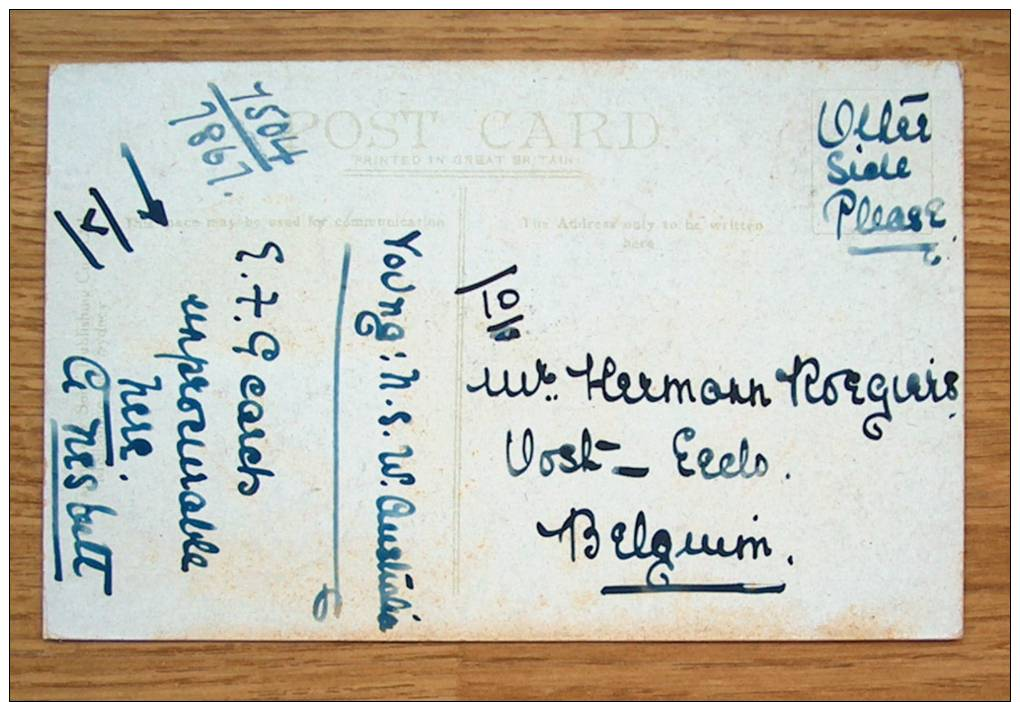 POST CARD
PRINTED IN GREAT BRITAIN
This space may be used for communication
The Address only to be written
here
Other
Side
Please
7504
7867.
Young: N.S.W. Australia
E. F. G cards
unprocurable
here.
A Nesbutt
V
10/
Mr. Hermann Roeguiers
Oost - Eeclo.
Belguim.